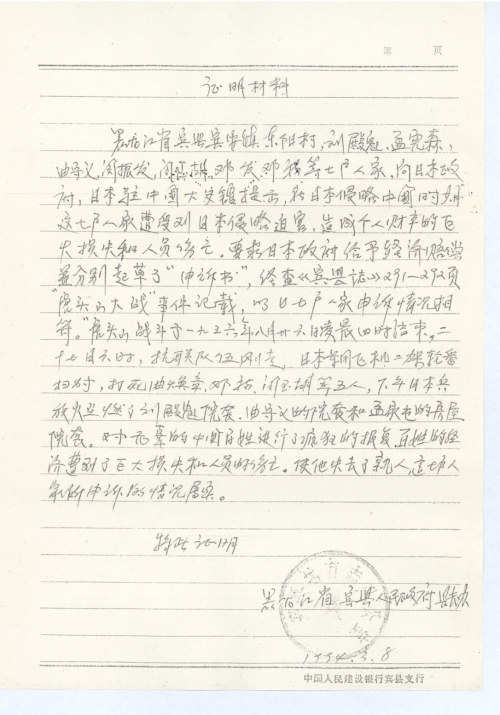 第 页
证明材料
黑龙江省宾县宾安镇东阳村,刘殿魁、孟宪森,
曲守义,闵振发,闵玉胡、邓发、邓 等七户人家,向日本政
府,日本驻中国大史馆提示,在日本侵略中国时期
这七户人家遭受到日本侵略迫害,造成个人财产的巨
大损失和人员伤亡。要求日本政府给予经济赔偿
并分别起草了“申诉书”,经查《宾县志》291—292页
“虎头山大战”事件记载,以七户人家申诉情况相
符。“虎头山战斗于一九三六年八月廿六日凌晨四时结束。二
十七日六时,抗联队伍刚走,日本军用飞机二架轮番
扫射,打死曲 、邓 、闵玉胡等五人,下午日本兵
放火烧了刘殿魁院套、曲守义的院套和孟宪 的房屋
院套。对无辜的中国百姓进行了疯狂的报复,百姓的经
济遭到了巨大损失和人员的伤亡。使他失去了亲人,这七人
家所申诉的情况属实。
特此证明
黑龙江省宾县人民政府县志办
1994.3.8
中国人民建设银行宾县支行